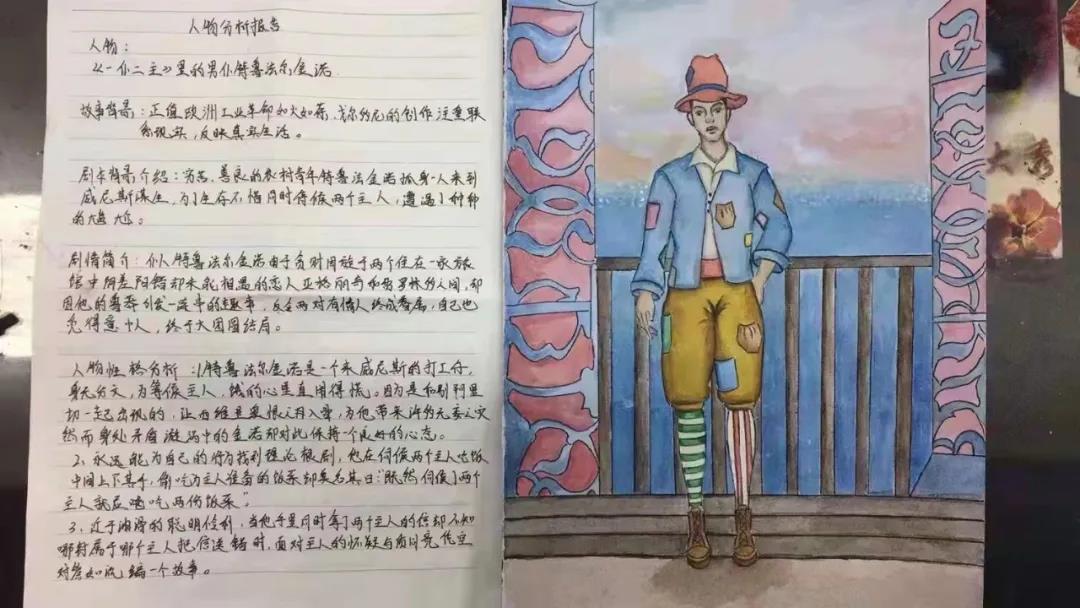 人物分析报告
人物：
《一仆二主》里的男仆特鲁法尔金诺
故事背景：正值欧洲工业革命如火如荼，哥尔多尼的创作注重联
系现实，反映真实生活。
剧本背景介绍：穷苦、善良的农村青年特鲁法金诺孤身一人来到
威尼斯谋生，为了生存不惜同时侍候两个主人，遭遇了种种
的尴尬。
剧情简介：仆人特鲁法尔金诺由于贪财周旋于两个住在一家旅
馆中阴差阳错却未能相遇的恋人亚格丽奇和弗罗林多之间，却
因他的鲁莽引发一连串的趣事，反令两对有情人终成眷属，自己也
抱得意中人，终于大团圆结局。
人物性格分析：1、特鲁法尔金诺是一个来威尼斯的打工仔，
身无分文，为等候主人，饿的心里直闹得慌。因为是和别利里
切一起出现的，让西维奥爱恨入骨，为他带来许多无妄之灾
然而身处矛盾漩涡中的金诺却对此保持一个良好的心态。
2、永远能为自己的行为找到理论根剧，他在伺候两个主人吃饭
中间上下其手，偷吃为主人准备的饭菜却美名其曰：“既然伺候了两个
主人就应该吃两份饭菜”
3、近于油滑的聪明伶俐，当他手里同时拿了两个主人的信却不知
哪封属于哪个主人把信送错时，面对主人的怀疑与质问竟凭空
对答如流编一个故事。
大秀